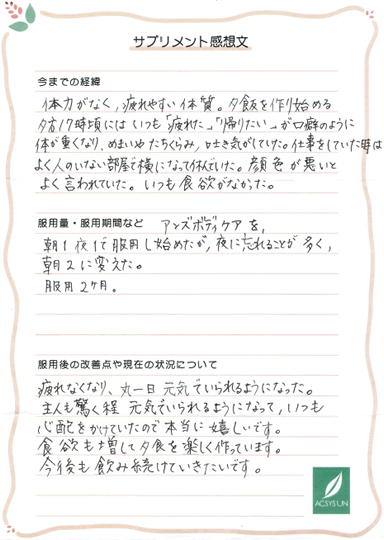 サプリメント感想文
今までの経緯
体力がなく,疲れやすい体質。夕飯を作り始める
夕方17時頃にはいつも「疲れた」「帰りたい」が口癖のように
体が重くなり、めまいや立ちくらみ,吐き気がしていた。仕事をしていた時は
よく人のいない部屋で横になって休んでいた。顔色が悪いと
よく言われていた。いつも食欲がなかった。
服用量・服用期間など アンズボディケアを,
朝1夜1で服用し始めたが,夜に忘れることが多く,
朝2に変えた。
服用2ヶ月。
服用後の改善点や現在の状況について
疲れなくなり、丸一日元気でいられるようになった。
主人も驚く程 元気でいられるようになって,いつも
心配をかけていたので本当に嬉しいです。
食欲も増して夕食を楽しく作っています。
今後も飲み続けていきたいです。
ACSYSUN